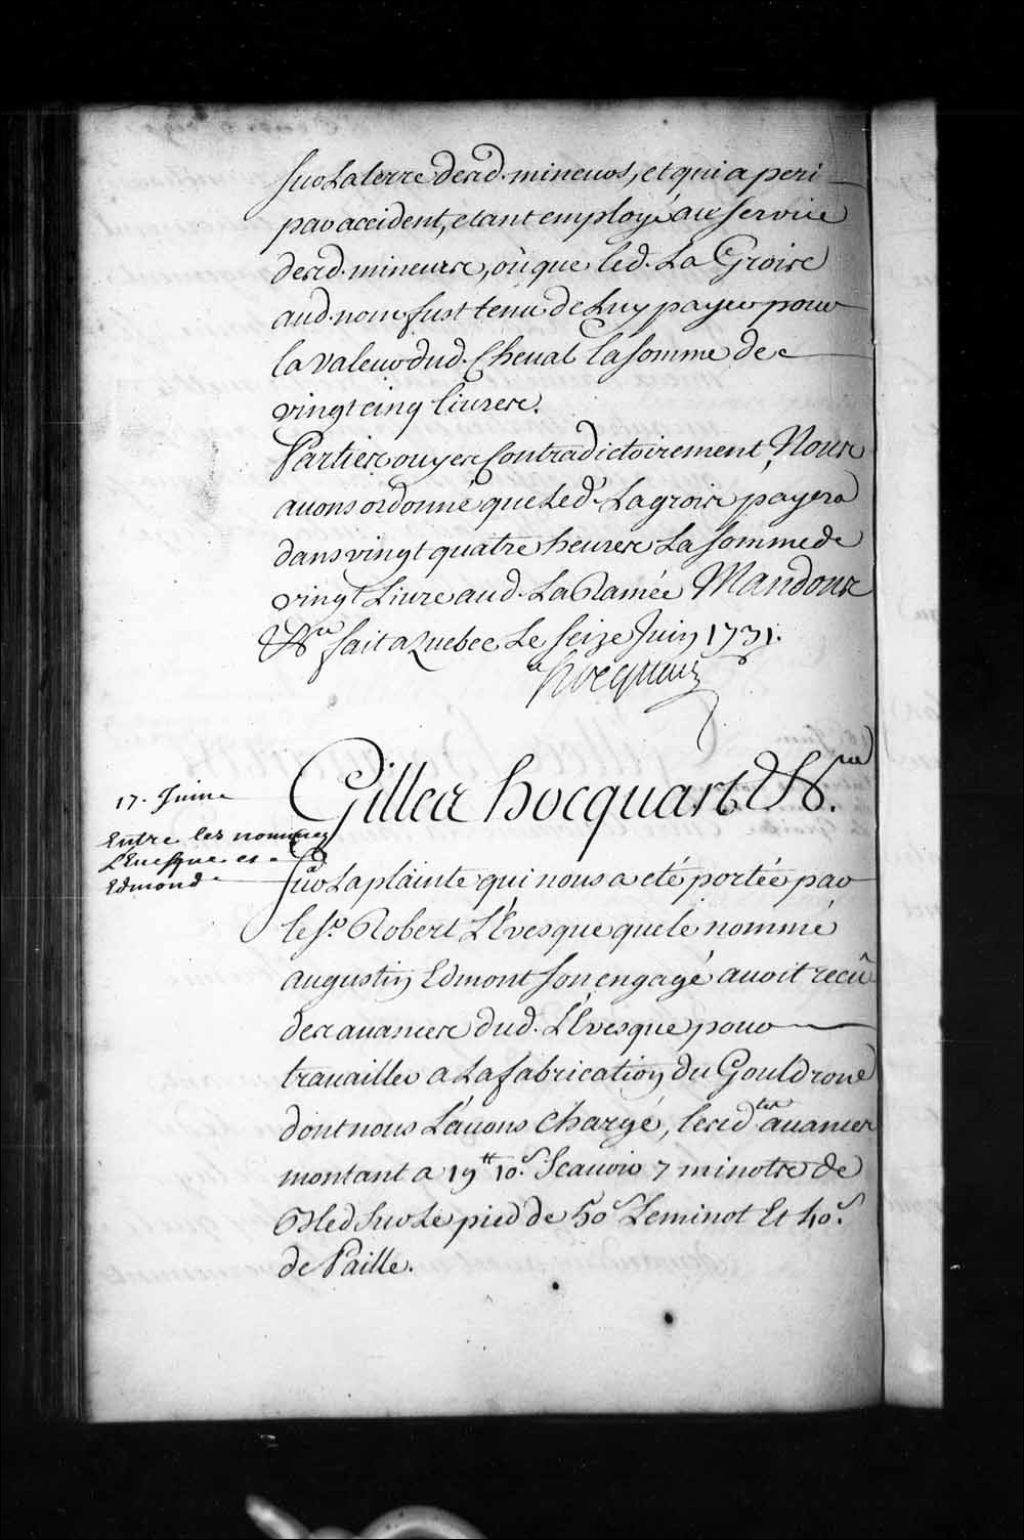 sur La terre desd. mineurs, et qui a peri
par accident, etant employé au Service
desd. mineurs, où que led. La Groise
aud. nom fust tenu de Luy payer pour
la valeur dud. Cheval la somme de
vingt cinq livres.
Parties ouyes Contradictoirement, Nous
avons ordonné que Led. Lagroise payera
dans vingt quatre heures La somme de
vingt Livre aud. La Ramée Mandons
&ca fait a Quebec Le seize Juin 1731.
hocquart
Gilles hocquart &ca.
17. Juin
Entre les nommez
L'Evesque et
Edmond
Sur La plainte qui nous a eté portée par
le Sr. Robert L'Evesque que le nommé
augustin Edmont son engagé avoit recû
des avances dud. L'Evesque pour
travailler a La fabrication du Gouldron
dont nous L'avons Chargé, lesdtes avances
montant a 19tt 10s. Scavoir 7 minots de
Bled sur Le pied de 50s Le minot Et 40s.
de Paille.